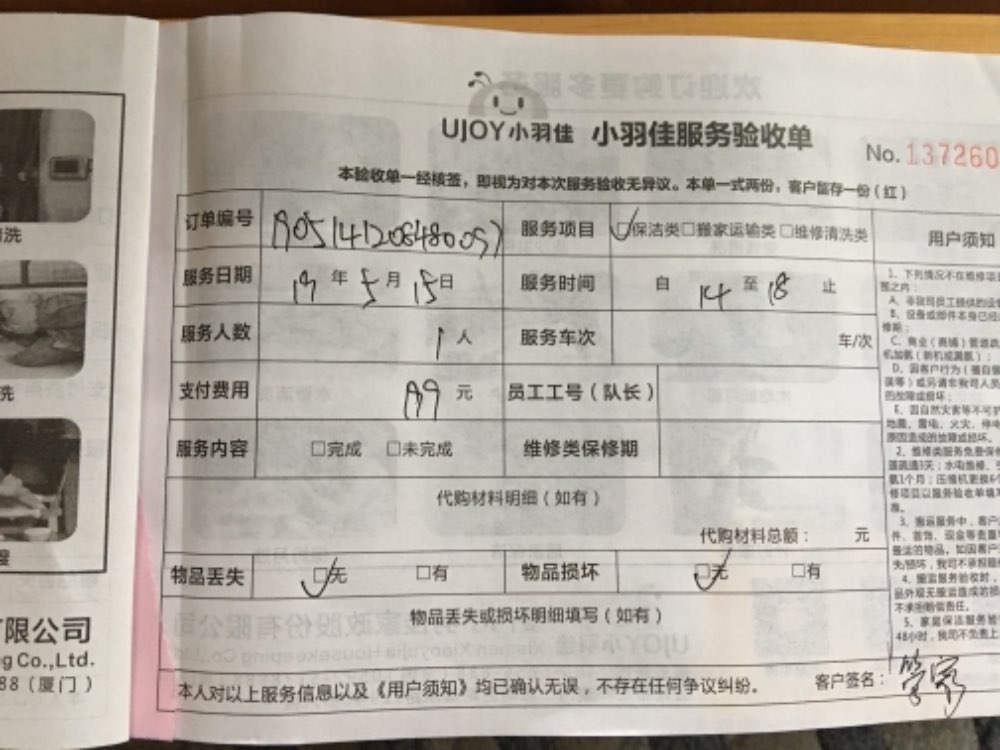 UJOY小羽佳 小羽佳服务验收单
No. 137260
本验收单一经核签，即视为对本次服务验收无异议。本单一式两份，客户留存一份（红）
订单编号 服务项目 保洁类□搬家运输类□维修清洗类
服务日期 年 5 月 15 日 服务时间 自 14 至 18 止
服务人数 1 人 服务车次 车/次
支付费用 元 员工工号（队长）
服务内容 □完成 □未完成 维修类保修期
代购材料明细（如有）
代购材料总额： 元
物品丢失 □无 □有 物品损坏 □无 □有
物品丢失或损坏明细填写（如有）
本人对以上服务信息以及《用户须知》均已确认无误，不存在任何争议纠纷。 客户签名：
用户须知
1、下列情况不在维修项
围之内：
A、非我司员工提供的设
B、设备或部件本身已经
修期；
C、商业（商铺）管道疏
机加氨（新机或漏氨）；
D、因客户行为（擅自
误等）或另请非我司人员
的故障或损坏；
E、因自然灾害等不可
地震、雷电、火灾、停电
原因造成的故障或损坏。
2、维修类服务免费保
氨1个月；压缩机更换6个
修项目以服务验收单填写
准。
3、搬运服务中，客户
件、首饰、现金等贵重
搬运的物品，如因客户
失/损坏，我司不承担赔
4、搬运服务验收时，
品外观无搬运造成的损
不承担赔偿责任。
5、家庭保洁服务验
48小时，我司不负责上
洗
洗
限公司
g Co.,Ltd.
88（厦门）